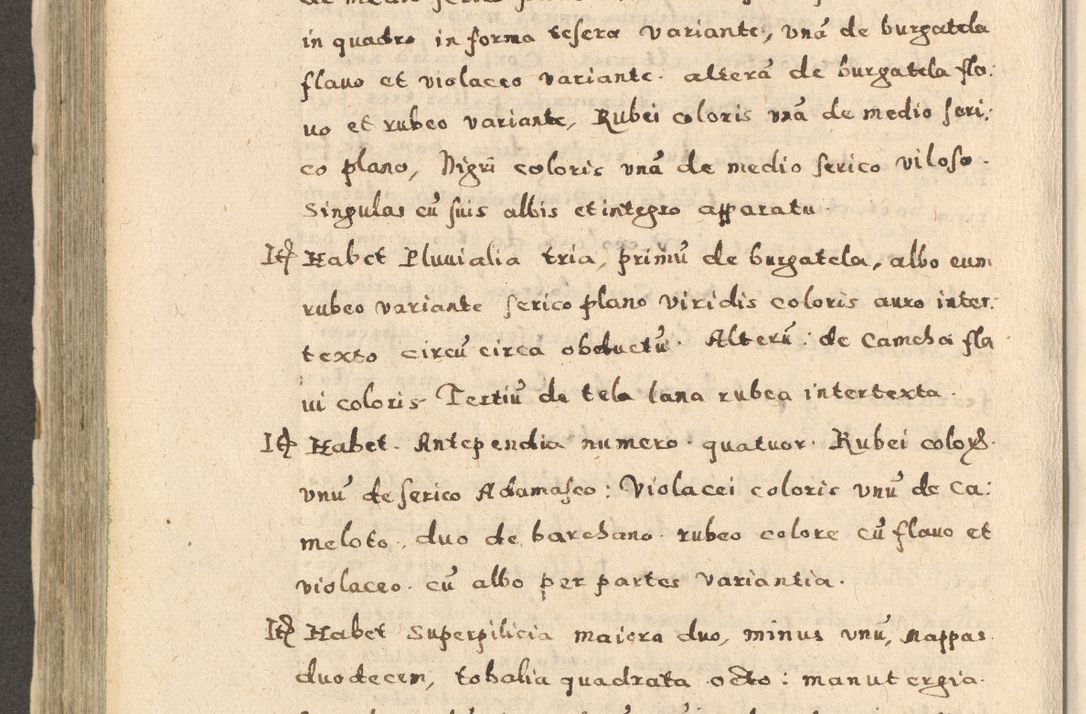 in quadro in forma tesera variante, vnā de burgatela
flauo et violaceo variante. alterā de burgatela fla:
uo et rubeo variante, Rubei coloris vnā de medio seri:
co plano, Nigri coloris vnā de medio serico viloso.
Singulas cū suis albis et integro apparatu
Itē Habet Pluuialia tria, primū de burgatela, albo cum
rubeo variante serico plano viridis coloris auro inter:
texto circū circa obductū. Alterū: de Camcha fla
ui coloris Tertiū de tela lana rubea intertexta.
Itē Habet. Antependia numero quatuor. Rubei coloris.
vnū de serico Adamasco: Violacei coloris vnū de Ca:
meloto. duo de barchano rubeo colore cū flauo et
violaceo. cū albo per partes variantia.
Itē Habet Superpilicia maiora duo, minus vnū, nappas.
duodecem, tobalia quadrata octo: manutergia.